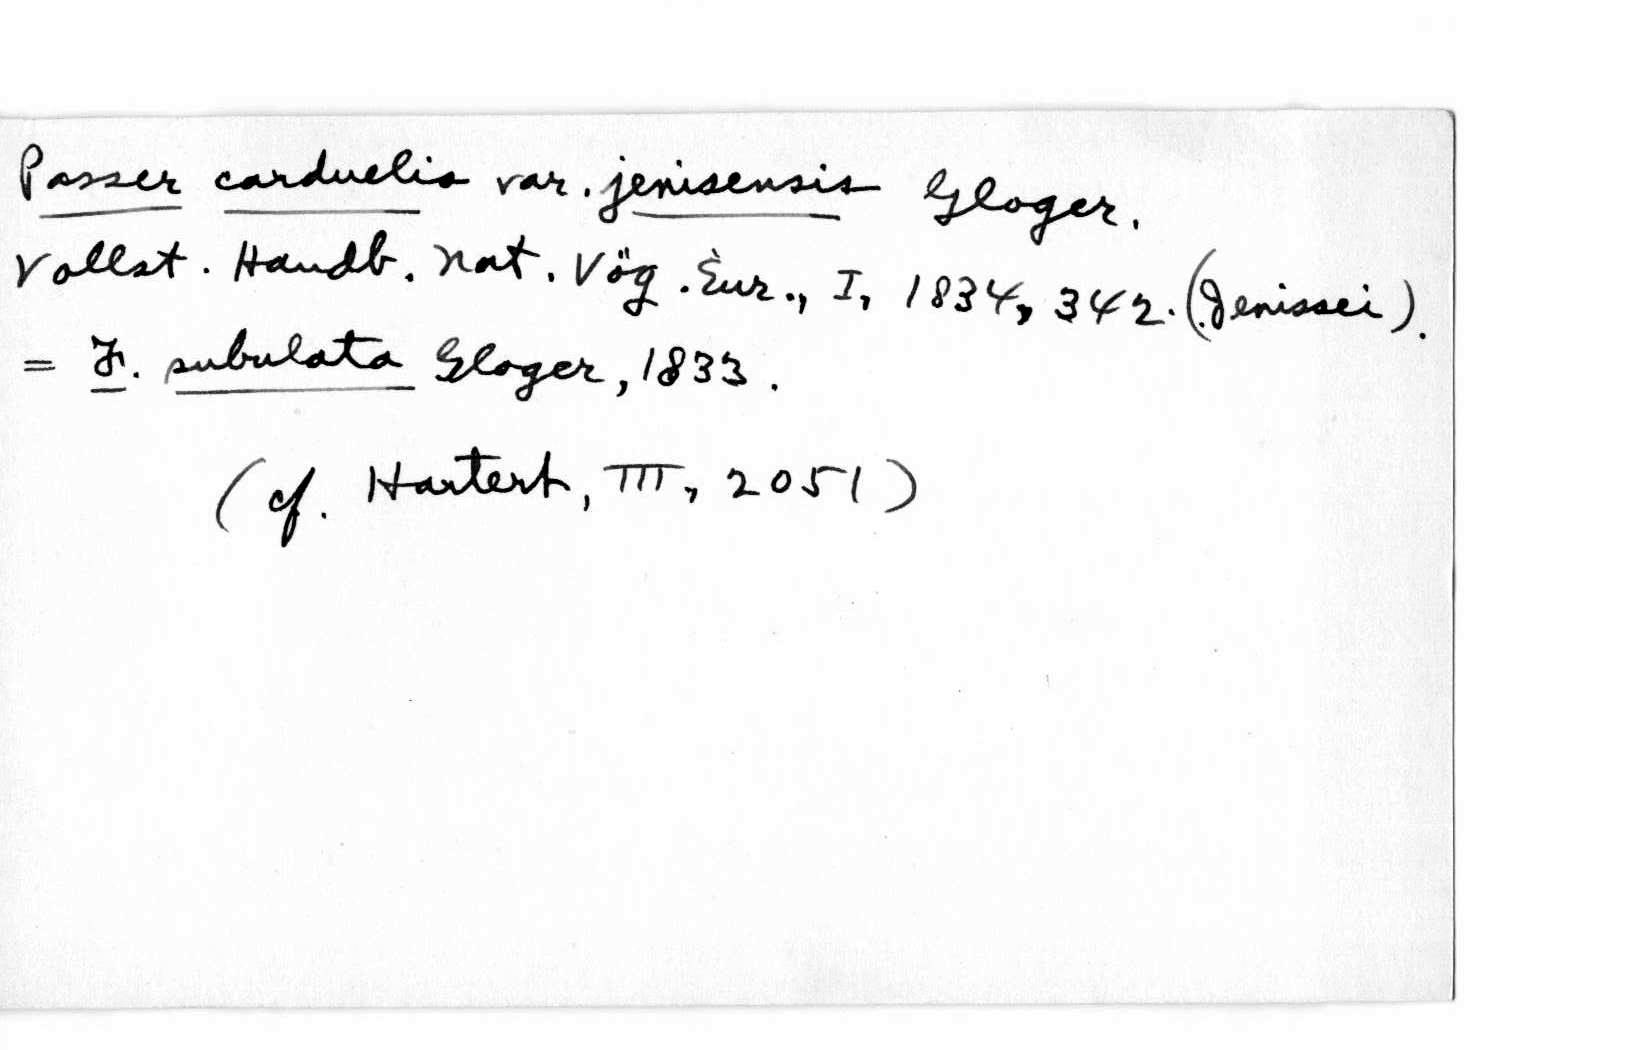 Passer carduelis var. jenisensis Gloger.
Vollst. Handb. Nat. Vög. Eur., I, 1834, 342. (Jenissei).
= F. subulata Gloger, 1833.
(cf. Hartert, III, 2051)